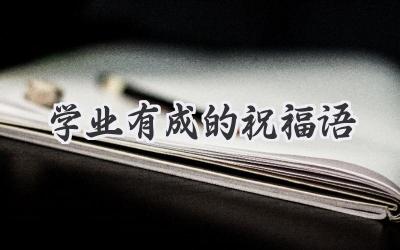 学业有成的祝福语